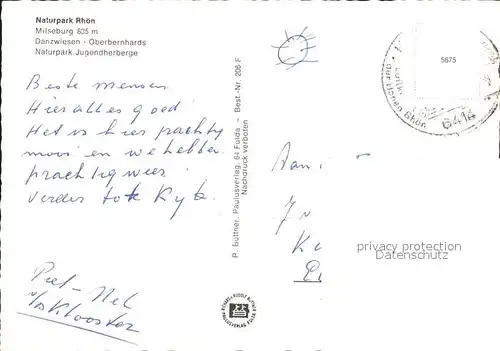 Naturpark Rhön
Milseburg 835 m
Danzwiesen - Oberbernhards
Naturpark Jugendherberge
Beste mensen
Hier alles goed
Het is hier prachtig
mooi en we hebben
prachtig weer.
verder tot Kijk.
Piet - Nel
v/d Klooster
P. Büttner, Paulusverlag, 64 Fulda — Best.-Nr. 206 F
Nachdruck verboten
5675
der schönen Rhön
6414
Aan
privacy protection
Ansichtskarten-Center.de